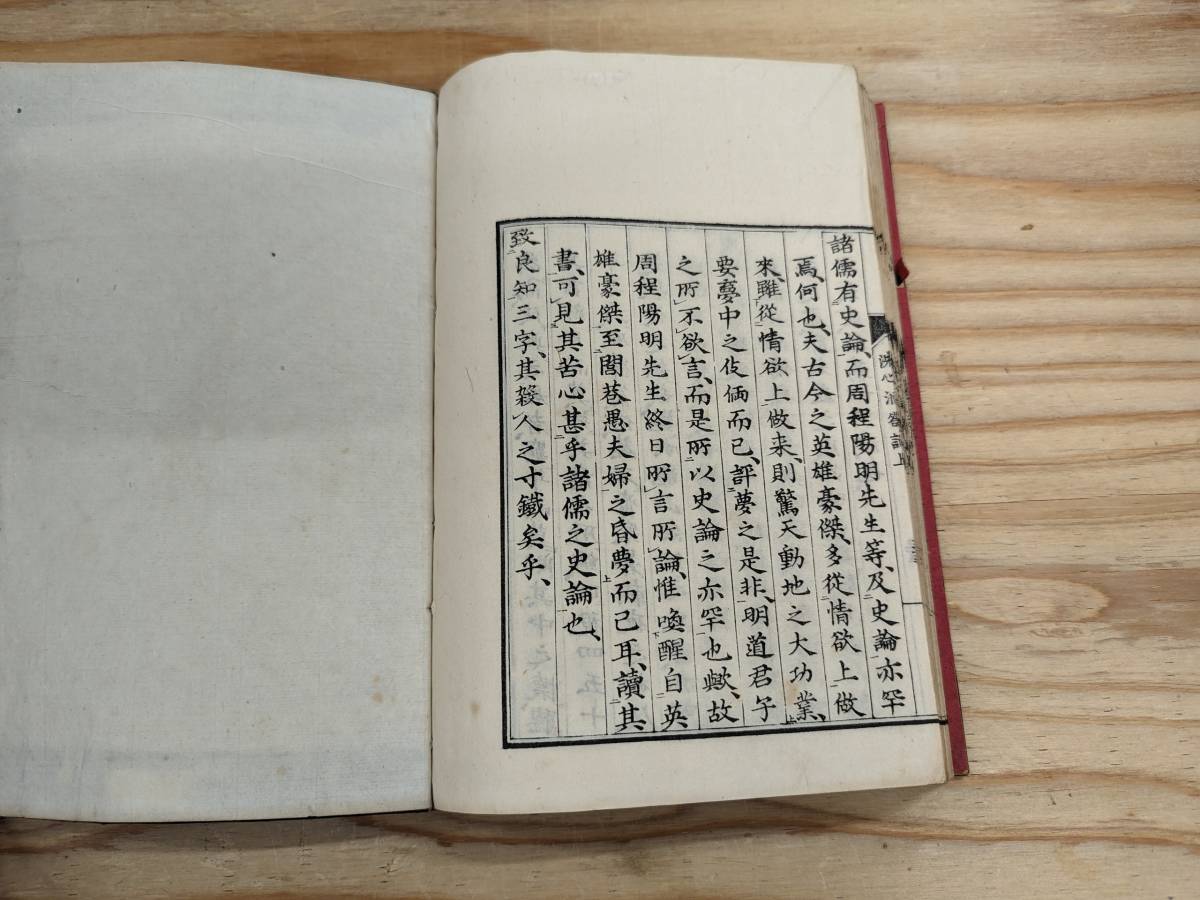 諸儒有史論、而周程陽明先生等、及史論亦罕
焉、何也、夫古今之英雄豪傑、多從情欲上做
來、雖從情欲上做来、則驚天動地之大功業、
要夢中之伎倆而已、評夢之是非、明道君子
之所不欲言、而是所以史論之亦罕也歟、故
周程陽明先生、終日所言所論、惟喚醒自英
雄豪傑至閭巷愚夫婦之昏夢而已耳、讀其
書、可見其苦心甚乎諸儒之史論也、
致良知三字、其殺人之寸鐵矣乎、
洗心洞劄記上